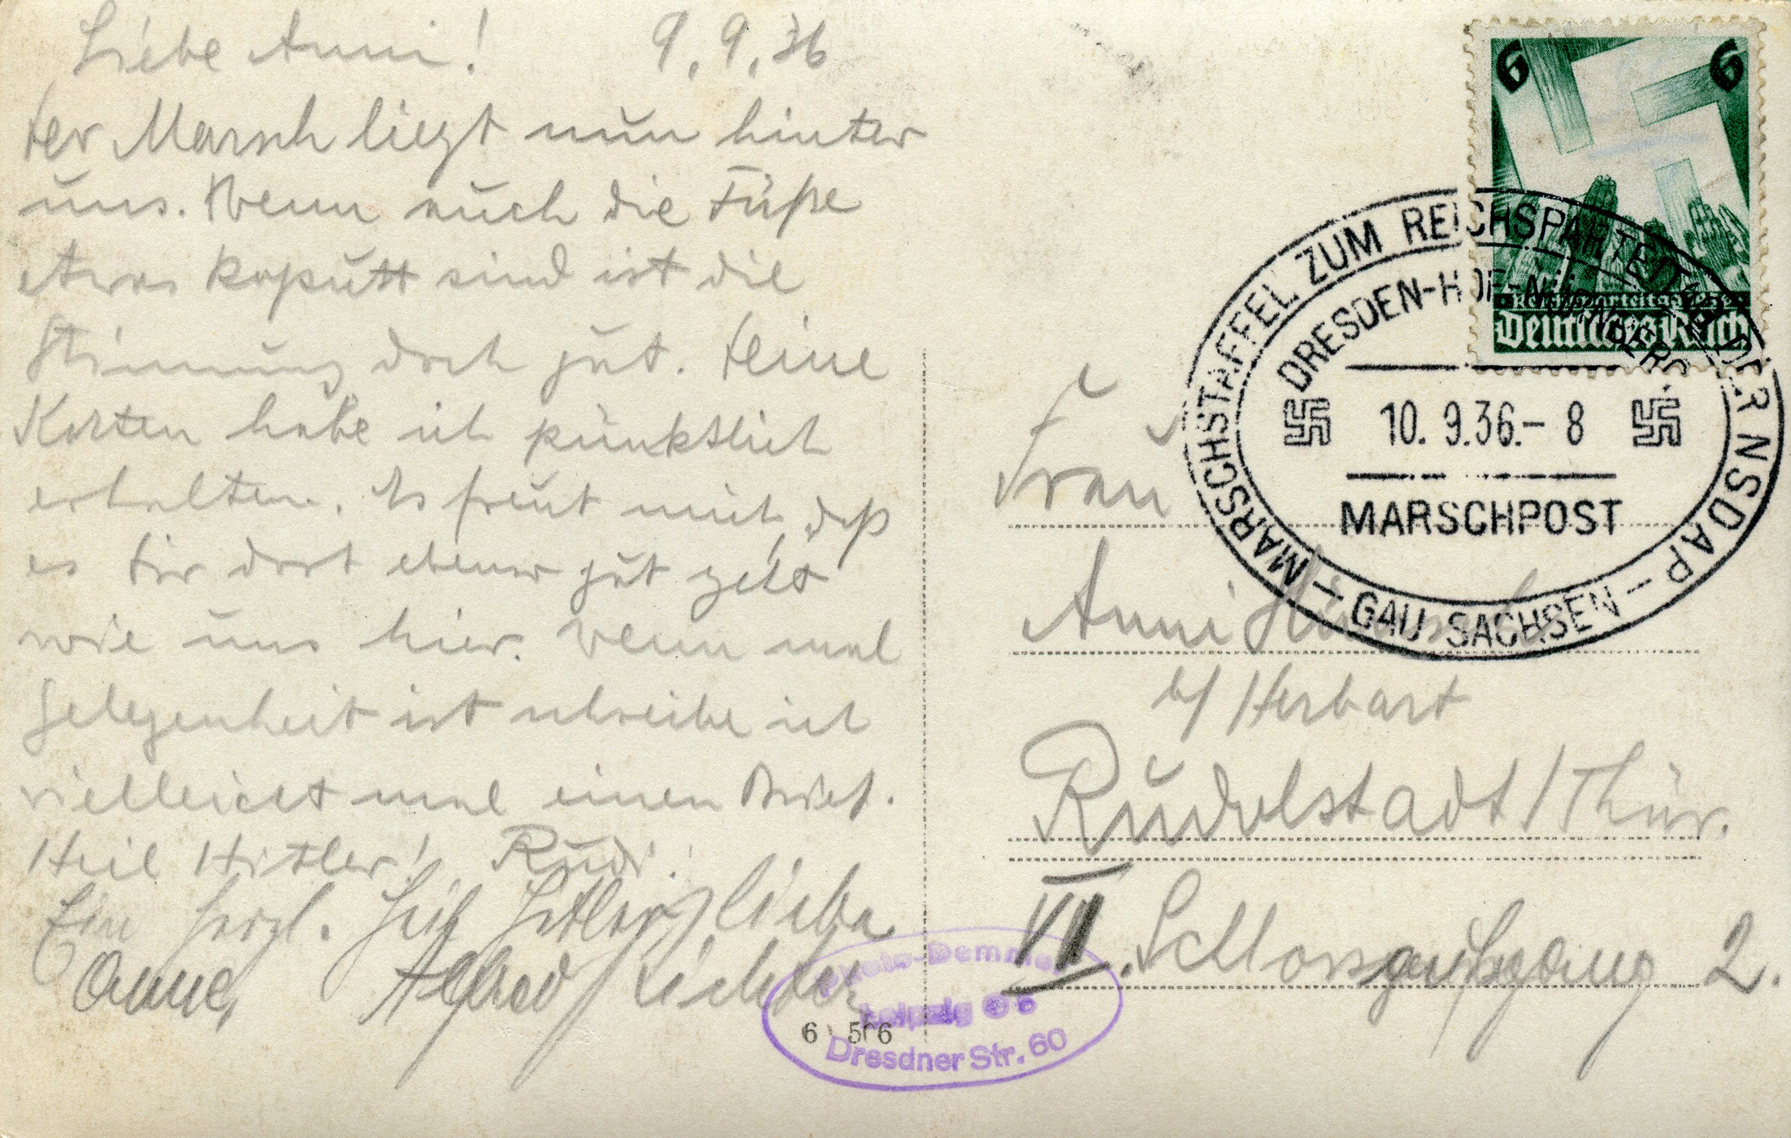 Liebe Anni! 9.9.36
Der Marsch liegt nun hinter
uns. Wenn auch die Füße
etwas kaputt sind ist die
Stimmung doch gut. Deine
Karten habe ich pünktlich
erhalten. Es freut mich, daß
es Dir dort ebenso gut geht
wie uns hier. Wenn mal
Gelegenheit ist schreibe ich
vielleicht mal einen Brief.
Heil Hitler! Rudi.
Ein herzl. Heil Hitler liebe
Anne, Alfred Richter
6 6
Reichsparteitag
Deutsches Reich
MARSCHSTAFFEL ZUM REICHSPARTEITAG DER NSDAP
DRESDEN-HOF-NÜRNBERG
10.9.36.-8
MARSCHPOST
– GAU SACHSEN –
Frau
Anni
b/ Herbart
Rudolstadt/Thür.
VII. Schlossaufgang 2.
Photo-Demmer
Leipzig
Dresdner Str. 60